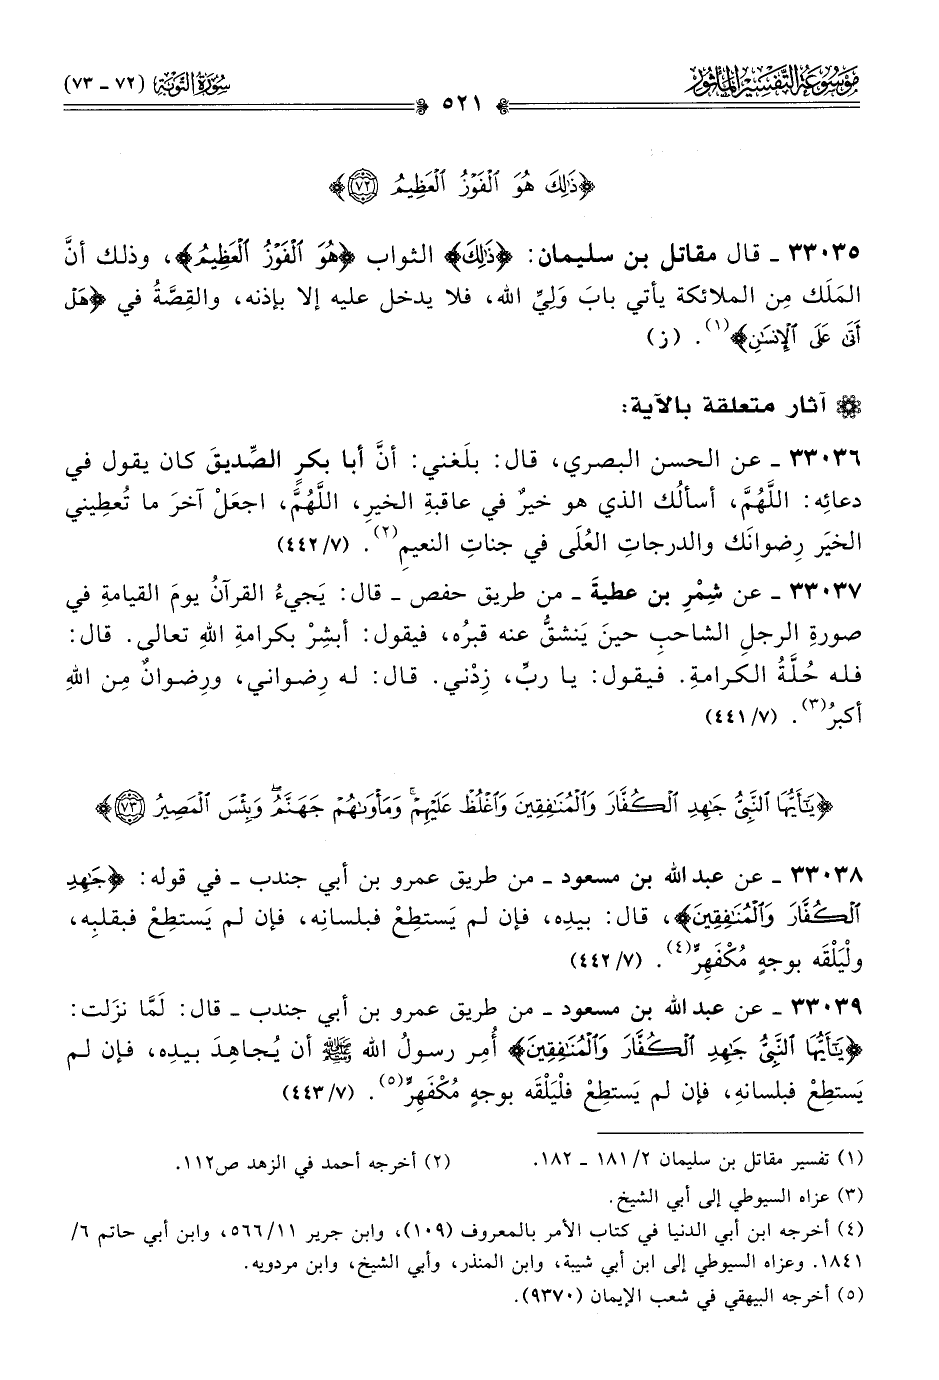 مَوْسُوعَة التَّفْسِيرِ المَأْثُور
سُورَة التَّوبَة (٧٢ - ٧٣)
٥٢١
﴿ذَٰلِكَ هُوَ ٱلْفَوْزُ ٱلْعَظِيمُ ٧٢﴾
٣٣٠٣٥ ـ قال مقاتل بن سليمان: ﴿ذَٰلِكَ﴾ الثواب ﴿هُوَ ٱلْفَوْزُ ٱلْعَظِيمُ﴾، وذلك أنَّ
المَلَك مِن الملائكة يأتي بابَ وَلِيِّ الله، فلا يدخل عليه إلا بإذنه، والقِصَّةُ في ﴿هَلْ
أَتَىٰ عَلَى ٱلْإِنسَٰنِ﴾(١). (ز)
آثار متعلقة بالآية:
٣٣٠٣٦ ـ عن الحسن البصري، قال: بلَغني: أنَّ أبا بكرٍ الصِّديقَ كان يقول في
دعائِه: اللَّهُمَّ، أسألُك الذي هو خيرٌ في عاقبةِ الخيرِ، اللَّهُمَّ، اجعَلْ آخرَ ما تُعطِيني
الخيَر رِضوانَك والدرجاتِ العُلَى في جناتِ النعيمِ(٢). (٤٤٢/٧)
٣٣٠٣٧ ـ عن شِمْرِ بن عطيةَ ـ من طريق حفص ـ قال: يَجيءُ القرآنُ يومَ القيامةِ في
صورةِ الرجلِ الشاحبِ حينَ يَنشقُّ عنه قبرُه، فيقول: أبشِرْ بكرامةِ اللهِ تعالى. قال:
فله حُلَّةُ الكرامةِ. فيقول: يا ربِّ، زِدْني. قال: له رِضواني، ورِضوانٌ مِن اللهِ
أكبرُ(٣). (٤٤١/٧)
﴿يَٰٓأَيُّهَا ٱلنَّبِىُّ جَٰهِدِ ٱلْكُفَّارَ وَٱلْمُنَٰفِقِينَ وَٱغْلُظْ عَلَيْهِمْ ۚ وَمَأْوَىٰهُمْ جَهَنَّمُ ۖ وَبِئْسَ ٱلْمَصِيرُ ٧٣﴾
٣٣٠٣٨ ـ عن عبد الله بن مسعود ـ من طريق عمرو بن أبي جندب ـ في قوله: ﴿جَٰهِدِ
ٱلْكُفَّارَ وَٱلْمُنَٰفِقِينَ﴾، قال: بيدِه، فإن لم يَستطِعْ فبلسانِه، فإن لم يَستطِعْ فبقلبِه،
ولْيَلْقَه بوجهٍ مُكْفَهِرٍّ(٤). (٤٤٢/٧)
٣٣٠٣٩ ـ عن عبد الله بن مسعود ـ من طريق عمرو بن أبي جندب ـ قال: لَمَّا نزَلت:
﴿يَٰٓأَيُّهَا ٱلنَّبِىُّ جَٰهِدِ ٱلْكُفَّارَ وَٱلْمُنَٰفِقِينَ﴾ أُمِر رسولُ الله ﷺ أن يُجاهِدَ بيدِه، فإن لم
يَستطِعْ فبلسانهِ، فإن لم يَستطِعْ فلْيَلْقَه بوجهٍ مُكْفَهِرٍّ(٥). (٤٤٣/٧)
(١) تفسير مقاتل بن سليمان ٢/ ١٨١ ـ ١٨٢.
(٢) أخرجه أحمد في الزهد ص١١٢.
(٣) عزاه السيوطي إلى أبي الشيخ.
(٤) أخرجه ابن أبي الدنيا في كتاب الأمر بالمعروف (١٠٩)، وابن جرير ١١/ ٥٦٦، وابن أبي حاتم ٦/
١٨٤١. وعزاه السيوطي إلى ابن أبي شيبة، وابن المنذر، وأبي الشيخ، وابن مردويه.
(٥) أخرجه البيهقي في شعب الإيمان (٩٣٧٠).